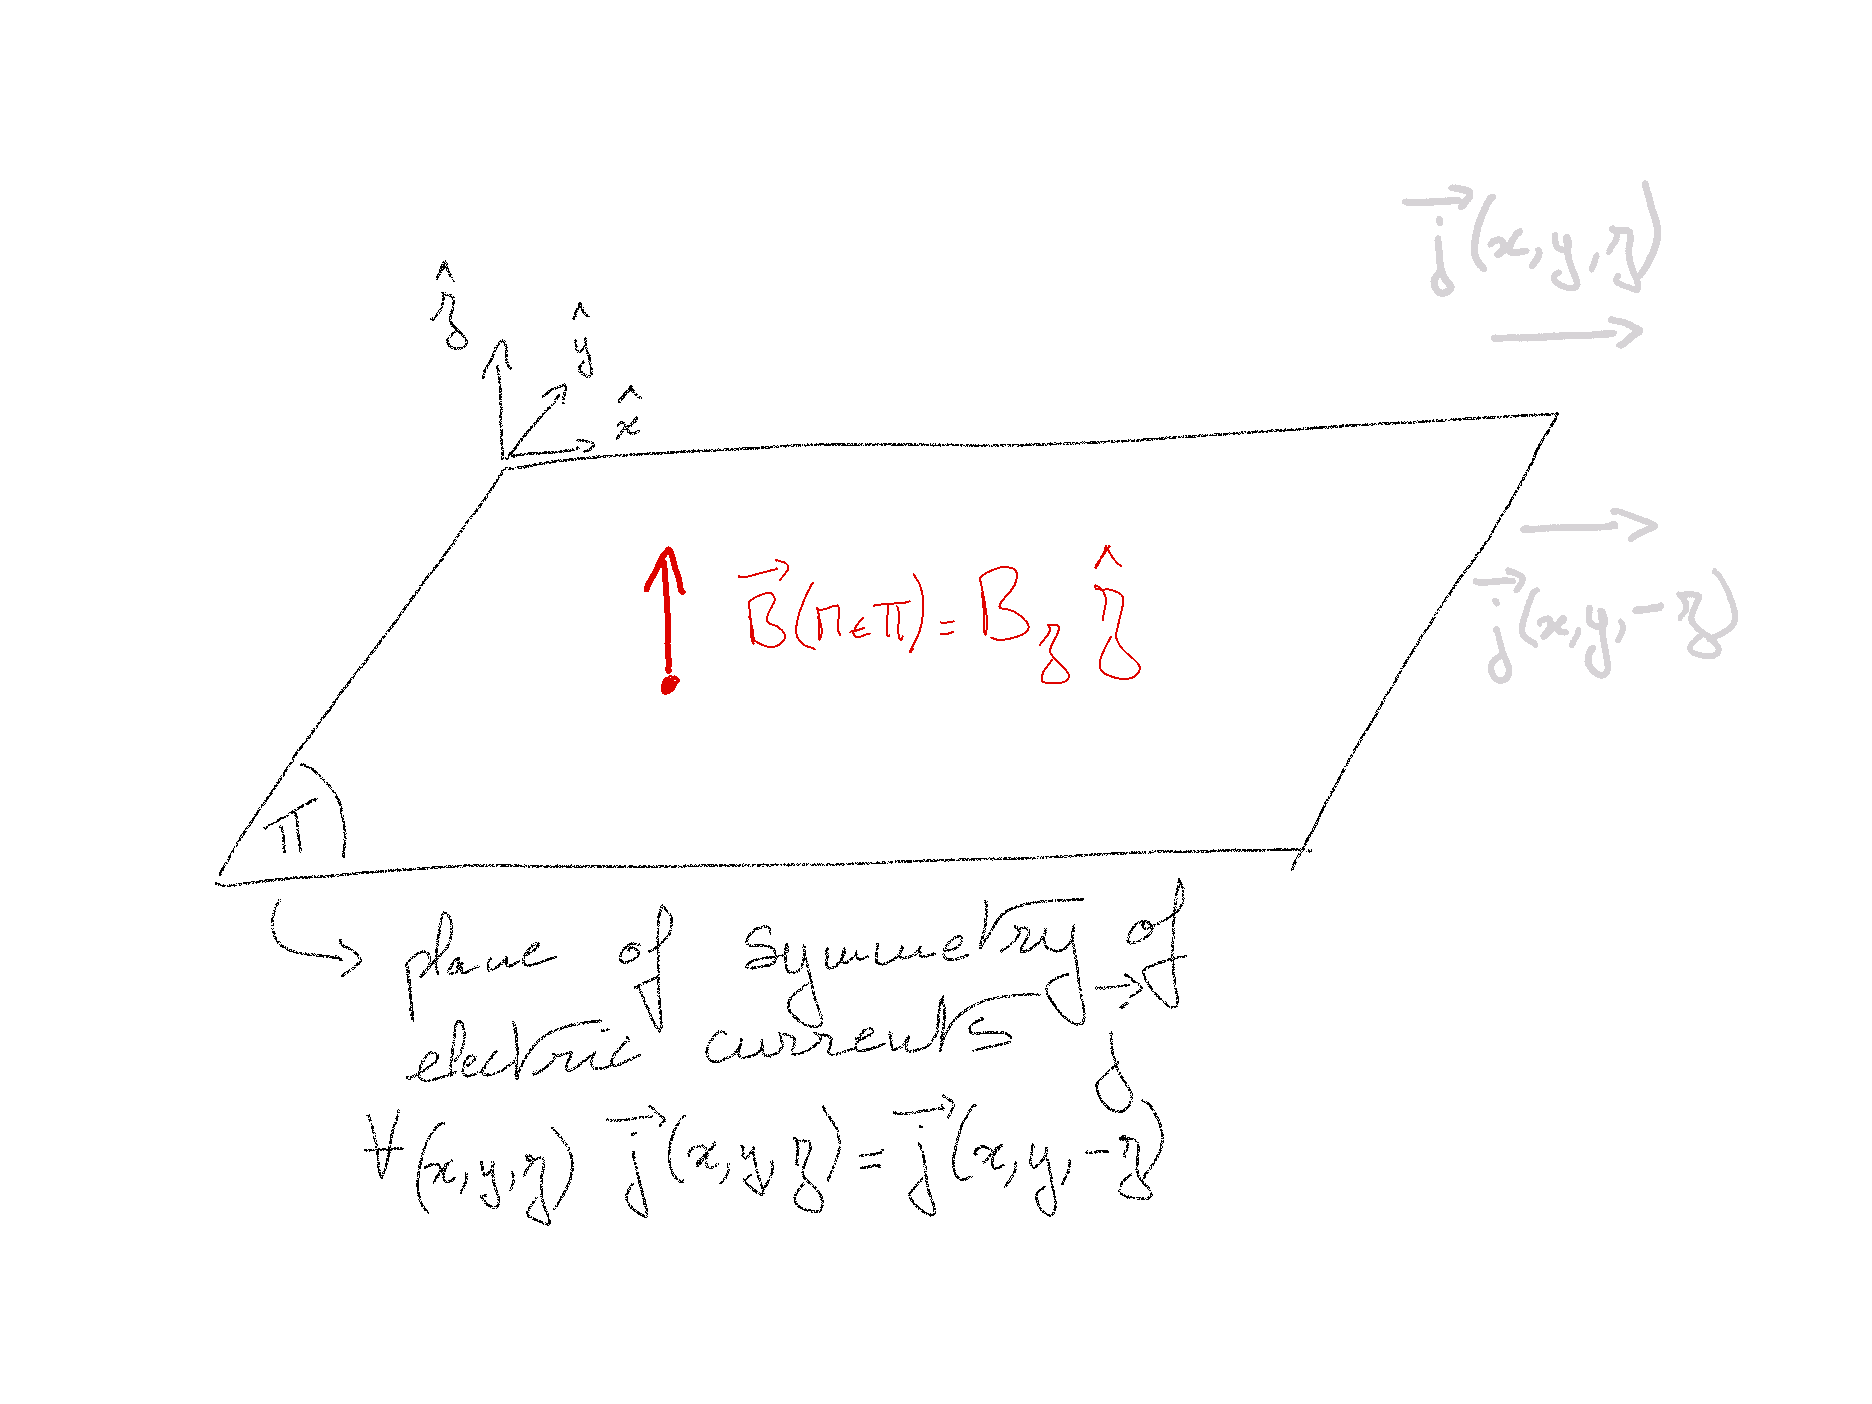 j⃗(x,y,z)
ẑ
ŷ
x̂
B⃗(M∈π) = B_z ẑ
j⃗(x,y,-z)
π
plane of symmetry of
electric currents j⃗
∀(x,y,z) j⃗(x,y,z) = j⃗(x,y,-z)